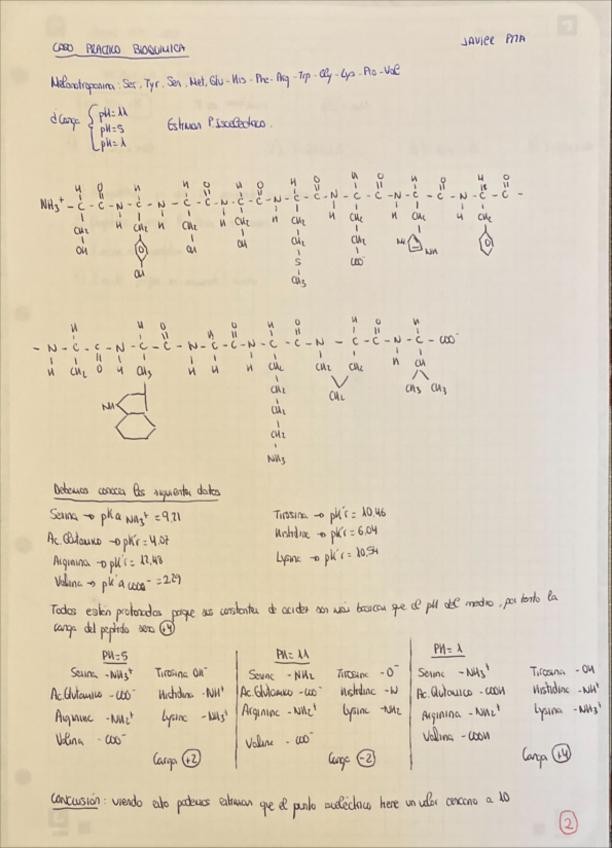 CASO PRACTICO BIOQUIMICA
JAVIER PITA
Melanotropina: Ser, Tyr, Ser, Met, Glu - His - Phe - Arg - Trp - Gly - Lys - Pro - Val
d Carga { pH = 11
pH = 5
pH = 1
Estimar P. isoeléctrico.
H O H H O H O H O H O H O H O
NH3+ - C - C - N - C - N - C - C - N - C - C - N - C - C - N - C - C - N - C - C - N - C - C -
CH2 H CH2 H CH2 H CH2 H CH2 H CH2 H CH2 H CH2
OH OH OH OH CH2 CH2 NH
S COO-
CH3
H H O O H O H O H
- N - C - C - N - C - C - N - C - C - N - C - C - N - C - C - N - C - COO-
H CH2 O H CH3 H H H CH2 CH2 CH2 H CH
NH CH2 CH2 CH3 CH3
CH2
CH2
NH3
Debemos conocer los siguientes datos
Serina → pKa NH3+ = 9,21
Tirosina → pK'r = 10,46
Ac. Glutamico → pK'r = 4,07
Histidina → pK'r = 6,04
Arginina → pK'r = 12,48
Lysina → pK'r = 10,54
Valina → pK'a COO- = 2,29
Todos están protonados porque sus constantes de acidez son más basicas que el pH del medio, por tanto la
carga del peptido sera +4
PH=5
PH=11
PH=1
Serina - NH3+ Tirosina OH-
Serina - NH2 Tirosina - O-
Serina - NH3+ Tirosina - OH
Ac. Glutamico - COO- Histidina - NH+
Ac. Glutamico - COO- Histidina - N
Ac. Glutamico - COOH Histidina - NH+
Arginina - NH2+ Lysina - NH3+
Arginina - NH2+ Lysina - NH2
Arginina - NH2+ Lysina - NH3+
Valina - COO-
Valina - COO-
Valina - COOH
Carga +2
Carga -2
Carga +4
Conclusión: viendo esto podemos estimar que el punto isoeléctrico tiene un valor cercano a 10
2